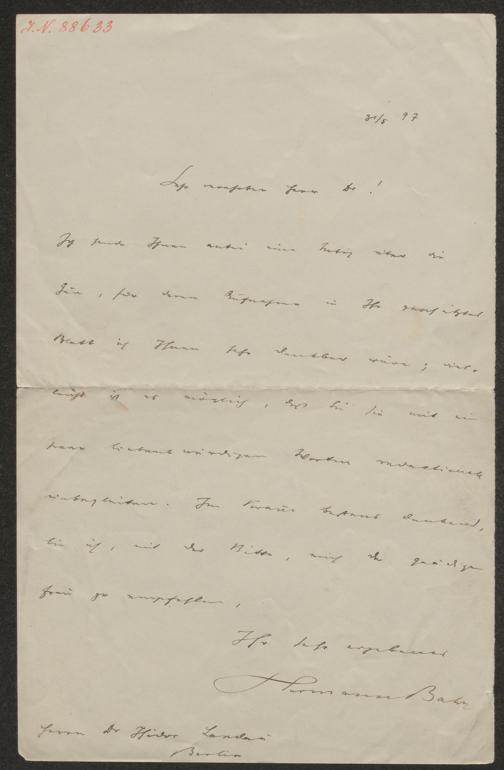 J.N. 88633
31/5 97
Sehr verehrter Herr Dr!
Ich sende Ihnen anbei eine Notiz über die
Zeit, für deren Aufnahme in Ihr geschätztes
Blatt ich Ihnen sehr dankbar wäre; viel-
leicht ist es möglich, daß Sie sie mit ein
paar liebenswürdigen Worten redactionell
einbegleiten. Im Voraus bestens dankend,
bin ich, mit der Bitte, mich der gnädigen
Frau zu empfehlen,
Ihr sehr ergebener
Hermann Bahr
Herrn Dr Isidor Landau
Berlin